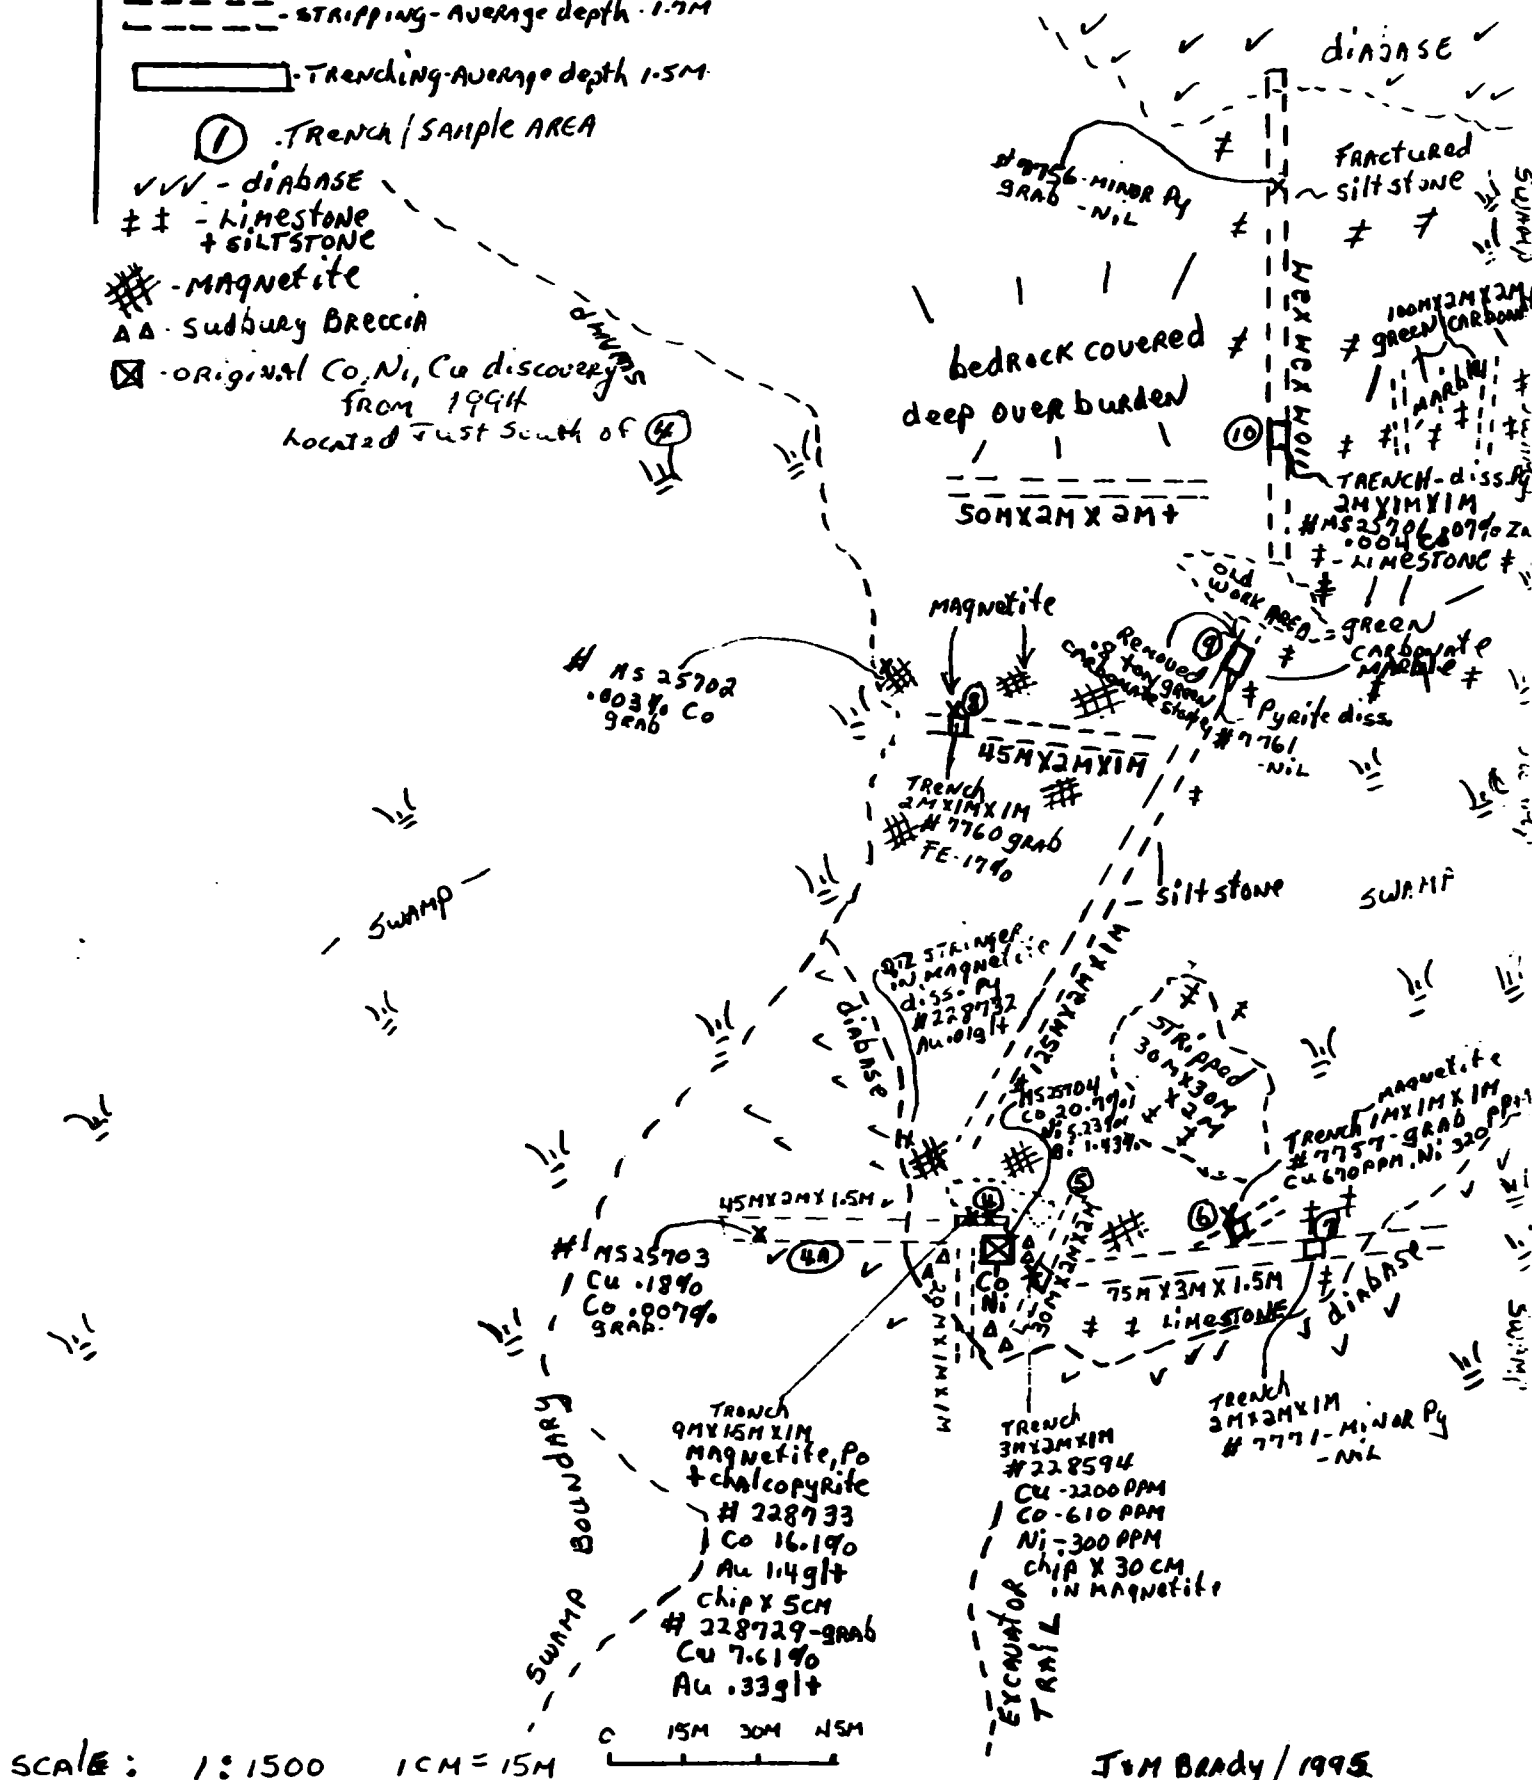 - STRIPPING - Average depth - 1.7M
- Trenching - Average depth 1.5M
① - Trench / Sample AREA
✓✓✓ - diabase
‡ ‡ - Limestone
+ SILTSTONE
- MAGNetite
△ △ - Sudbury Breccia
- original Co, Ni, Cu discovery
from 1994
Located Just South of ④
SWAMP
diabase
# 7756 - MINOR Py
grab - NIL
Fractured
~ siltstone
SWAMP
110M X 2M X 2M
100M X 2M X 2M
green carbon
MARble
bedrock covered
deep overburden
50M X 2M X 2M +
⑩
TRENCH - diss. Py
2M X 1M X 1M
# MS 25706 .07% Zn
.004 Co
‡ - Limestone ‡
Old
work area
= green
carbonate
Marble
MAGNetite
Removed
.8 ton green
carbonate stone
⑨
Pyrite diss.
# 7761
- NIL
# MS 25702
.003% Co
grab
⑧
45M X 2M X 1M
Trench
2M X 1M X 1M
# 7760 grab
FE - 17%
- siltstone
SWAMP
- SWAMP -
diabase
QTZ Stringer
in magnetite
diss. Py
# 228732
Au .01g/t
125M X 2M X 1M
Stripped
30M X 30M
X 2M
# MS25704
Co 20.7%
Ni 5.23%
Bi 1.43%
magnetite
Trench 1M X 1M X 1M
# 7757 - grab
Cu 670 PPM, Ni 320 PPM
45M X 2M X 1.5M
④
⑤
⑥
7
4A
# MS25703
Cu .18%
Co .007%
grab.
Co
Ni
20M X 1M X 1M
30M X 2M X 2M
75M X 3M X 1.5M
Limestone
diabase
SWAMP
SWAMP BOUNDARY
Trench
9M X 1.5M X 1M
Magnetite, Po
+ chalcopyrite
# 228733
Co 16.1%
Au 1.4g/t
chip X 5CM
# 228729 - grab
Cu 7.61%
Au .33g/t
Trench
3M X 2M X 1M
# 228594
Cu - 2200 PPM
Co - 610 PPM
Ni - 300 PPM
chip X 30 CM
IN MAGNetite
Trench
2M X 2M X 1M
# 7771 - MINOR Py
- NIL
EXCAVATOR
TRAIL
SCALE : 1:1500 1CM = 15M
0 15M 30M 45M
J & M BRADY / 1995